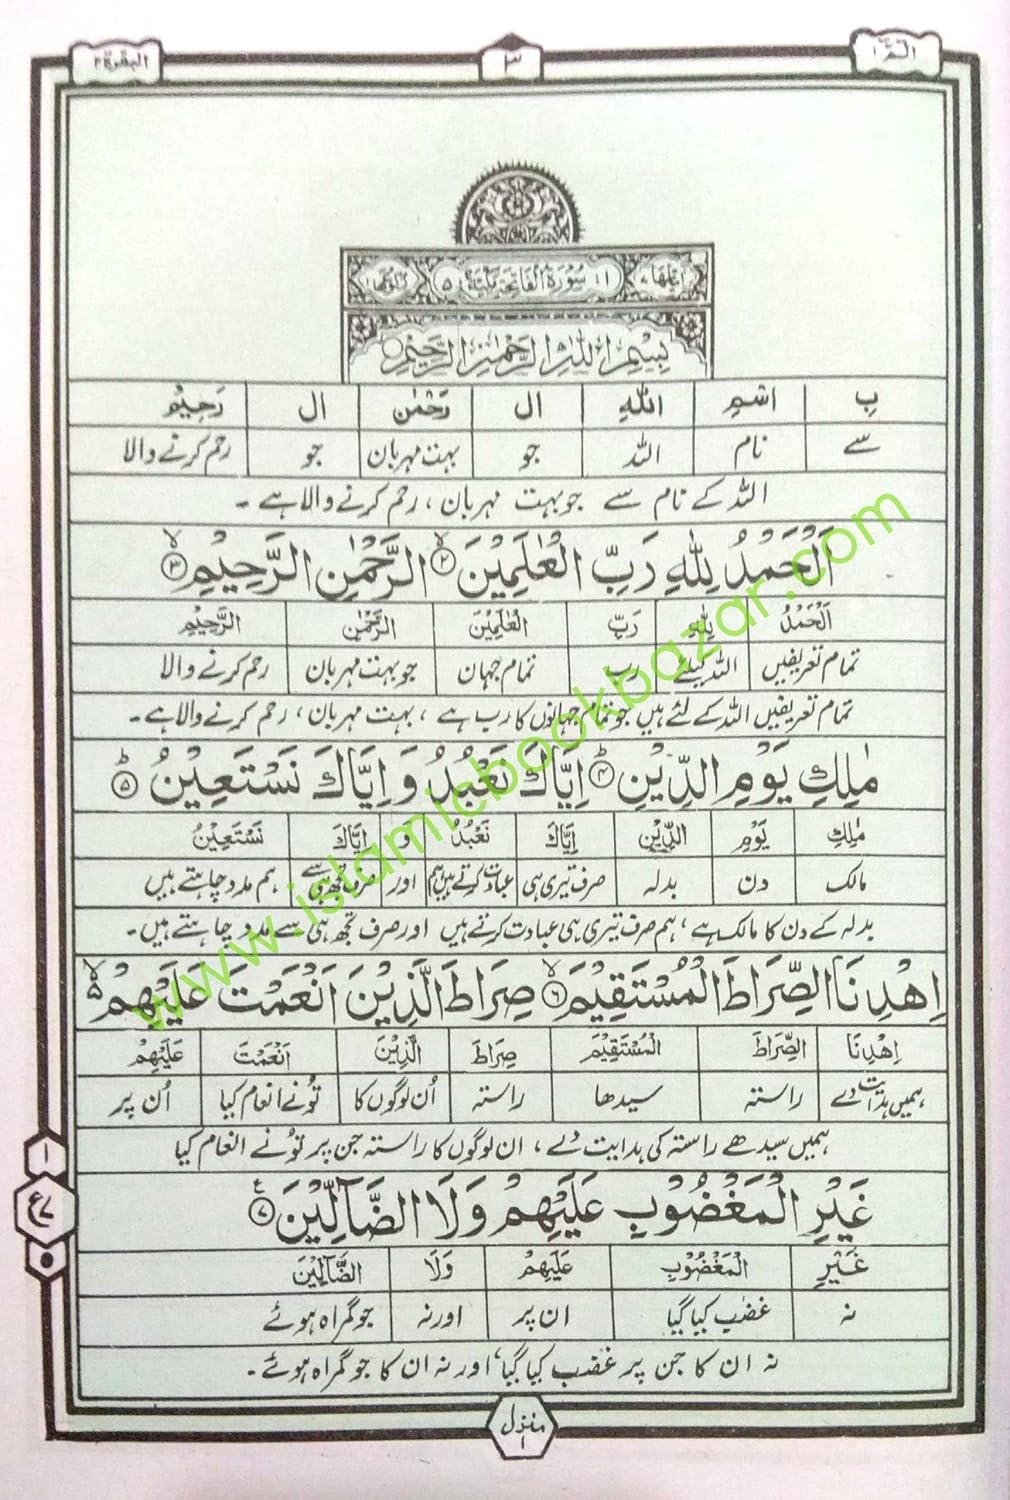 البقرة ٢ ٣ الٓمّٓ ١
اٰيٰتُهَا ٧ ١: سُوْرَةُ الْفَاتِحَةِ مَكِّيَّةٌ ٥ رُكُوْعُهَا ١
بِسْمِ اللّٰهِ الرَّحْمٰنِ الرَّحِيْمِ ①
بِ اسْمِ اللّٰهِ ال رَحْمٰن ال رَحِيْمِ
سے نام اللہ جو بہت مہربان جو رحم کرنے والا
اللہ کے نام سے جو بہت مہربان ، رحم کرنے والا ہے ۔
اَلْحَمْدُ لِلّٰهِ رَبِّ الْعٰلَمِيْنَ ۙ﴿٢﴾ الرَّحْمٰنِ الرَّحِيْمِ ۙ﴿٣﴾
اَلْحَمْدُ لِلّٰهِ رَبِّ الْعٰلَمِيْنَ الرَّحْمٰنِ الرَّحِيْمِ
تمام تعریفیں اللہ کیلئے رب تمام جہان جو بہت مہربان رحم کرنے والا
تمام تعریفیں اللہ کے لئے ہیں جو تمام جہانوں کا رب ہے ، بہت مہربان ، رحم کرنے والا ہے ۔
مٰلِكِ يَوْمِ الدِّيْنِ ؕ﴿٤﴾ اِيَّاكَ نَعْبُدُ وَ اِيَّاكَ نَسْتَعِيْنُ ؕ﴿٥﴾
مٰلِكِ يَوْمِ الدِّيْنِ اِيَّاكَ نَعْبُدُ وَ اِيَّاكَ نَسْتَعِيْنُ
مالک دن بدلہ صرف تیری ہی عبادت کرتے ہیں ہم اور صرف تجھ ہی سے ہم مدد چاہتے ہیں
بدلہ کے دن کا مالک ہے ، ہم صرف تیری ہی عبادت کرتے ہیں اور صرف تجھ ہی سے مدد چاہتے ہیں ۔
اِهْدِنَا الصِّرَاطَ الْمُسْتَقِيْمَ ۙ﴿٦﴾ صِرَاطَ الَّذِيْنَ اَنْعَمْتَ عَلَيْهِمْ ۙ۵
اِهْدِنَا الصِّرَاطَ الْمُسْتَقِيْمَ صِرَاطَ الَّذِيْنَ اَنْعَمْتَ عَلَيْهِمْ
ہمیں ہدایت دے راستہ سیدھا راستہ اُن لوگوں کا تُو نے انعام کیا اُن پر
ہمیں سیدھے راستہ کی ہدایت دے ، ان لوگوں کا راستہ جن پر تُو نے انعام کیا
غَيْرِ الْمَغْضُوْبِ عَلَيْهِمْ وَلَا الضَّآلِّيْنَ ﴿٧﴾ ع
١
ع ٧
غَيْرِ الْمَغْضُوْبِ عَلَيْهِمْ وَلَا الضَّآلِّيْنَ
نہ غضب کیا گیا ان پر اور نہ جو گمراہ ہوئے
نہ ان کا جن پر غضب کیا گیا ، اور نہ ان کا جو گمراہ ہوئے ۔
منزل ١
www.islamicbookbazar.com